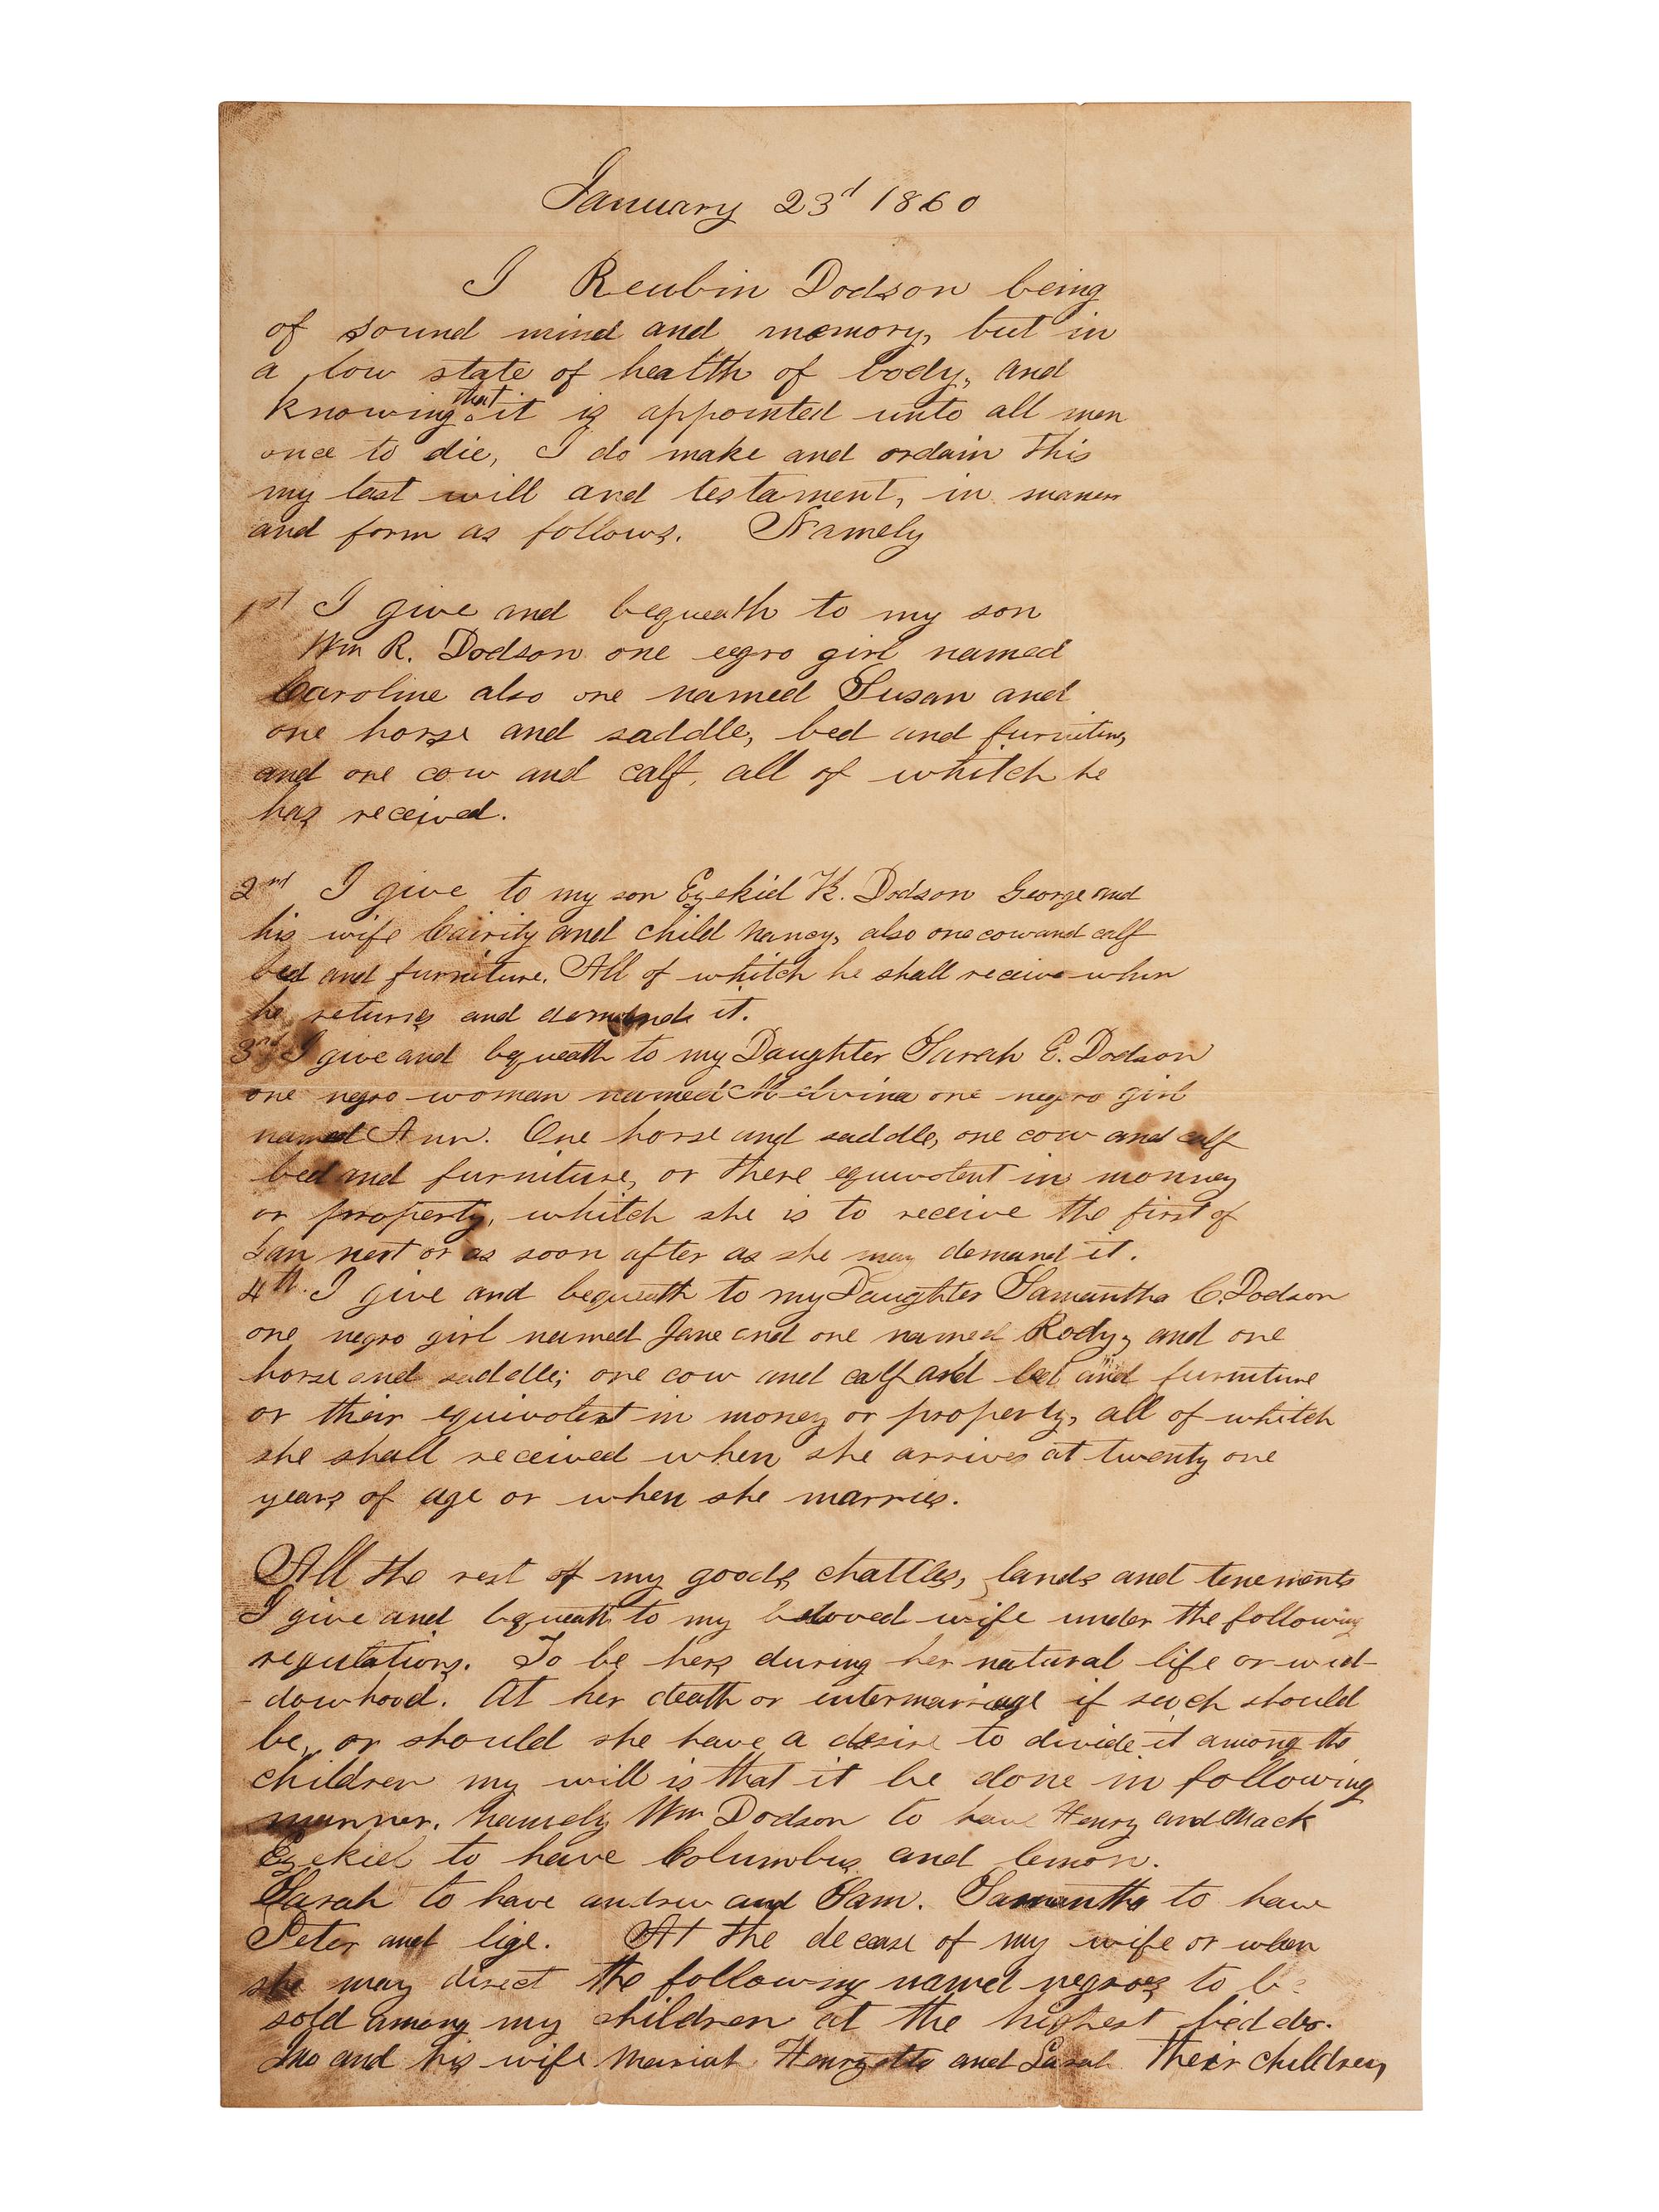 January 23d 1860
I Reubin Dodson being
of sound mind and memory, but in
a low state of health of body, and
knowing that it is appointed unto all men
once to die, I do make and ordain this
my last will and testament, in manner
and form as follows. Namely
1st I give and bequeath to my son
Wm R. Dodson one egro girl named
Caroline also one named Susan and
one horse and saddle, bed and furniture,
and one cow and calf, all of whitch he
has received.
2nd I give to my son Ezekiel K. Dodson George and
his wife Cairity and child Nancy, also one cow and calf
bed and furniture. All of whitch he shall receive when
he returns and demands it.
3rd I give and bequeath to my Daughter Sarah E. Dodson
one negro woman named Melvina one negro girl
named Ann. One horse and saddle, one cow and calf
bed and furniture, or there equivolent in monney
or property, whitch she is to receive the first of
Jan next or as soon after as she may demand it.
4th. I give and bequeath to my Daughter Samantha C. Dodson
one negro girl named Jane and one named Rody, and one
horse and saddle; one cow and calf and bed and furniture
or their equivolent in money or property, all of whitch
she shall received when she arrives at twenty one
years of age or when she marries.
All the rest of my goods chattles, lands and tenements
I give and bequeath to my beloved wife under the following
regulations. To be hers during her natural life or wid-
-dowhood. At her death or intermariage if such should
be, or should she have a desire to divide it among the
children my will is that it be done in following
manner. Namely Wm Dodson to have Henry and Mack
Ezekiel to have Columbus and lemon.
Sarah to have andrew and Sam. Samantha to have
Peter and lige. At the decease of my wife or when
she may direct the following named negroes to be
sold among my children at the highest bidder.
and his wife Mariah Henryetta and Sarah Their children,